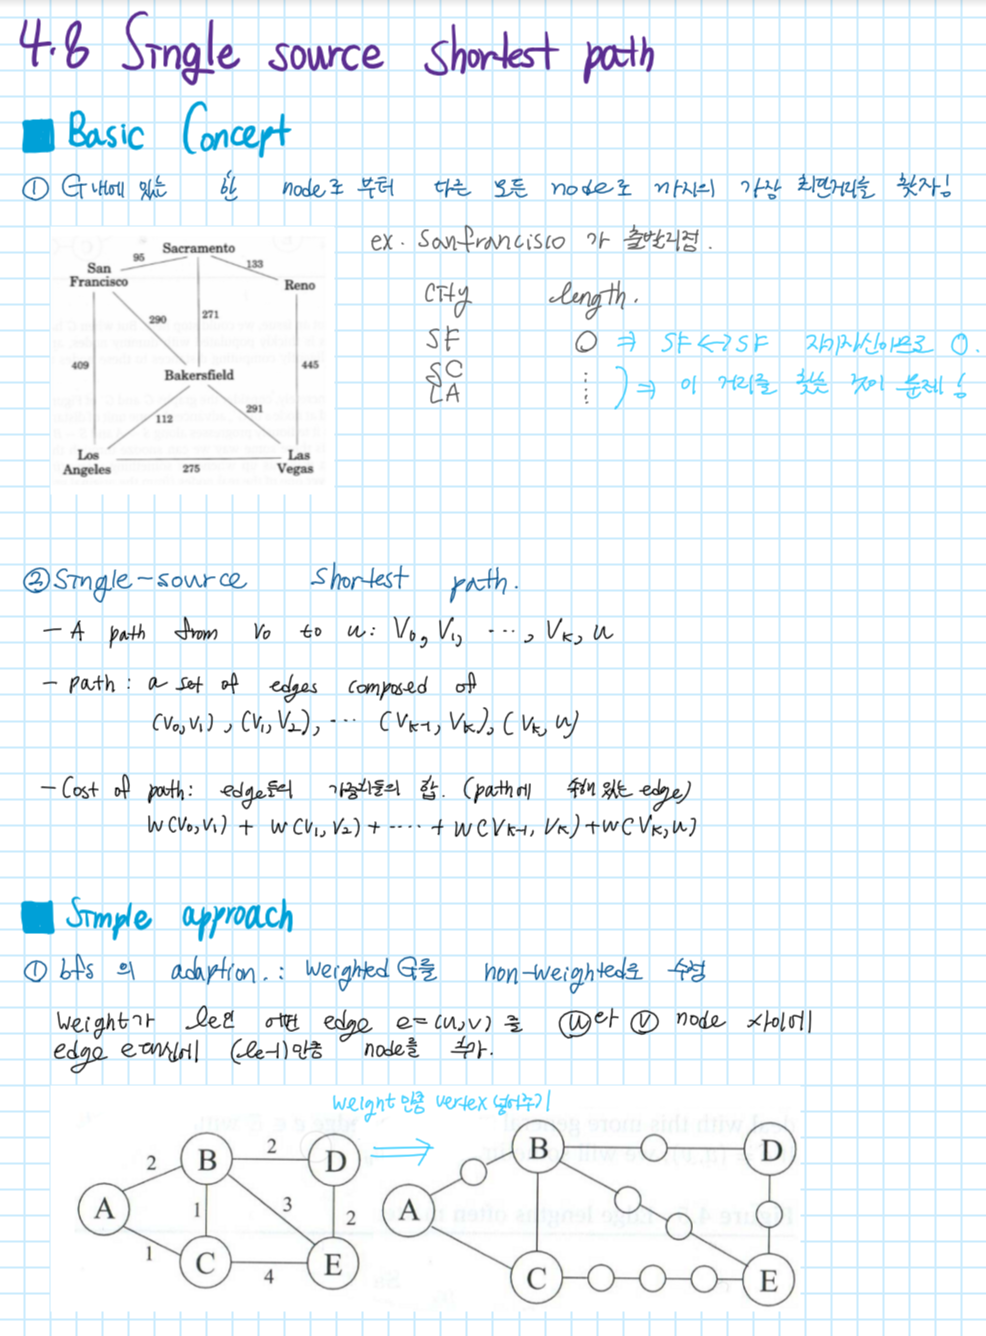 4.8 Single source shortest path
Basic Concept
① G내에 있는 한 node로 부터 다른 모든 node로 까지의 가장 최단거리를 찾자!
ex. Sanfrancisco 가 출발지점.
Sacramento
95
133
San
Francisco
Reno
290
271
409
Bakersfield
445
112
291
Los
Angeles
275
Las
Vegas
City length.
SF 0 ⇒ SF↔SF 자기자신이므로 0.
SC
LA ⋮ ) ⇒ 이 거리를 찾는 것이 문제!
② Single-source shortest path.
- A path from V0 to u: V0, V1, ..., Vk, u
- path: a set of edges composed of
(V0,V1), (V1,V2), ... (Vk-1, Vk), (Vk, u)
- Cost of path: edge들의 가중치들의 합. (path에 속해 있는 edge)
W(V0,V1) + W(V1,V2) + .... + W(Vk-1, Vk) + W(Vk,u)
Simple approach
① bfs의 adaption.: weighted G를 non-weighted로 수정
Weight가 le인 어떤 edge e=(u,v)를 ⓤ와 ⓥ node 사이에
edge e대신에 (le-1)만큼 node를 추가.
weight 만큼 vertex 넣어주기
A B C D E
2 2 1 3 2 1 4
A B C D E